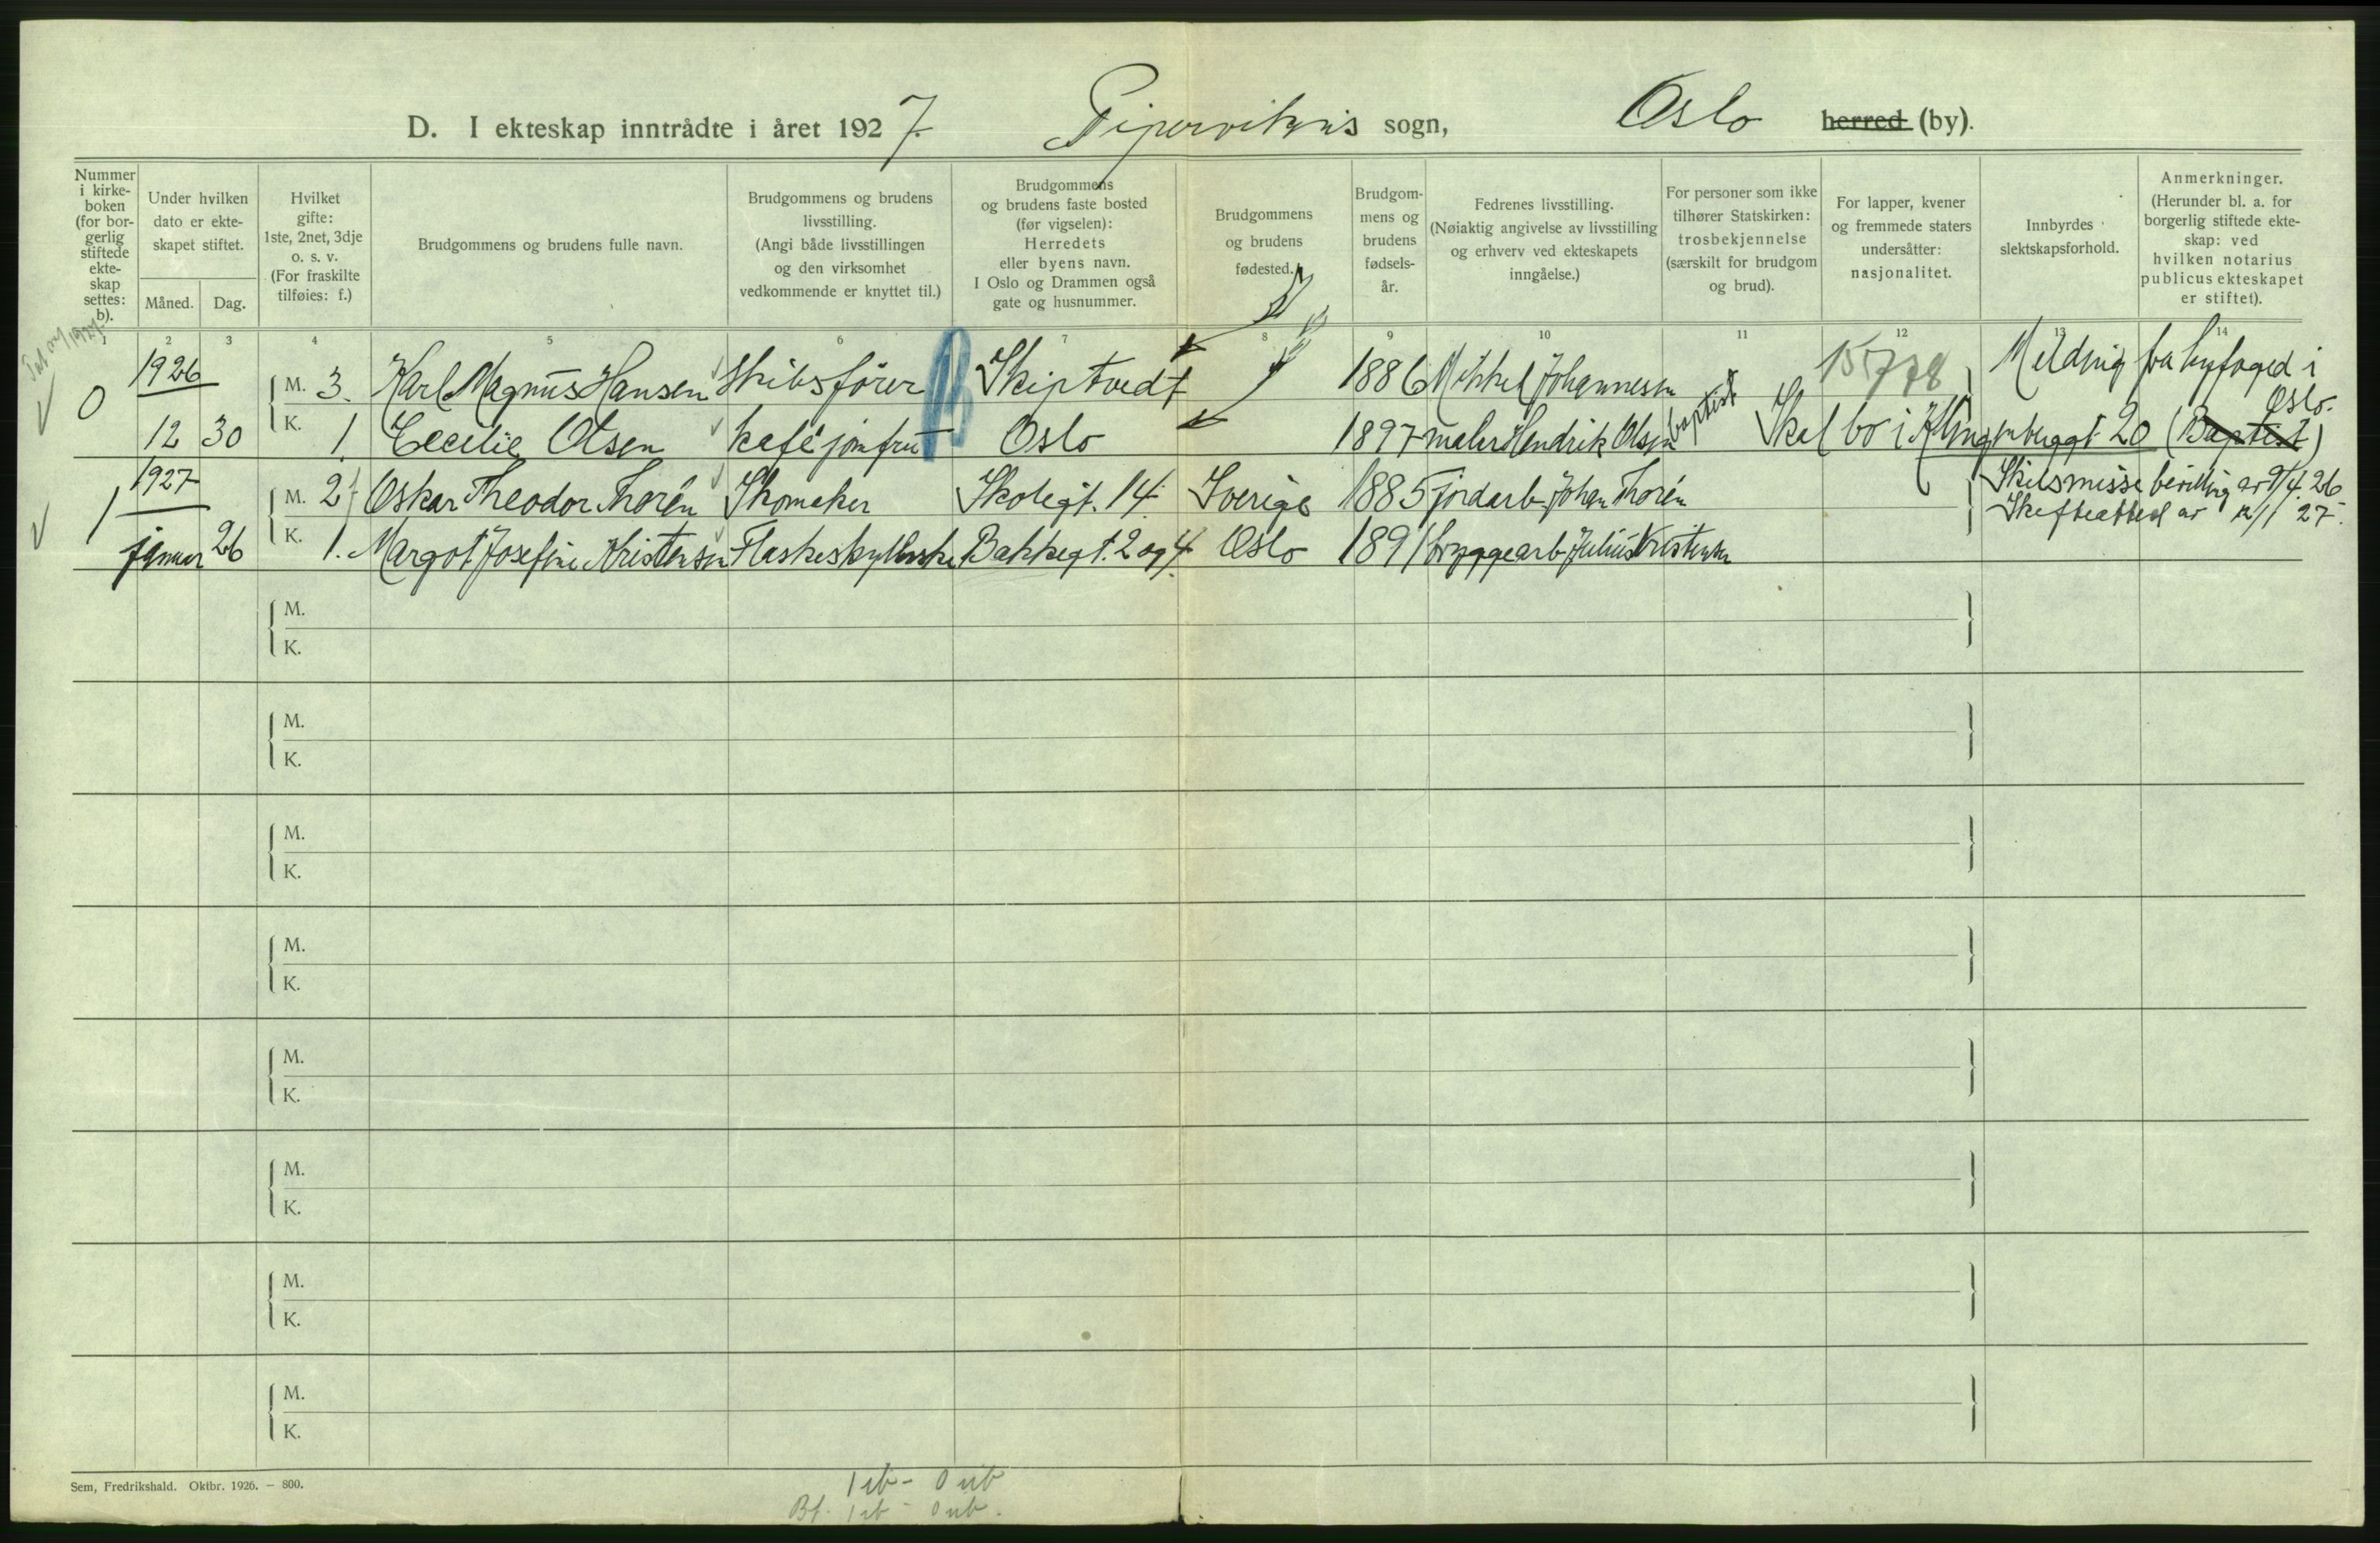 D. I ekteskap inntrådte i året 1927. Pipervikens sogn, Oslo herred (by).
Nummer i kirke- boken (for bor- gerlig stiftede ekte- skap settes: b).
Under hvilken dato er ekte- skapet stiftet.
Måned. Dag.
Hvilket gifte: 1ste, 2net, 3dje o. s. v. (For fraskilte tilføies: f.)
Brudgommens og brudens fulle navn.
Brudgommens og brudens livsstilling. (Angi både livsstillingen og den virksomhet vedkommende er knyttet til.)
Brudgommens og brudens faste bosted (før vigselen): Herredets eller byens navn. I Oslo og Drammen også gate og husnummer.
Brudgommens og brudens fødested.
Brudgom- mens og brudens fødsels- år.
Fedrenes livsstilling. (Nøiaktig angivelse av livsstilling og erhverv ved ekteskapets inngåelse.)
For personer som ikke tilhører Statskirken: trosbekjennelse (særskilt for brudgom og brud).
For lapper, kvener og fremmede staters undersåtter: nasjonalitet.
Innbyrdes slektskapsforhold.
Anmerkninger. (Herunder bl. a. for borgerlig stiftede ekte- skap: ved hvilken notarius publicus ekteskapet er stiftet).
1 2 3 4 5 6 7 8 9 10 11 12 13 14
1926
0 M. 3. Karl Magnus Hansen Skibsfører Skiptvedt 1886 Mikkel Johannessen 15778 Melding fra byfoged i Oslo.
12 30 K. 1. Cecilie Olsen kaféjomfru Oslo 1897 maler Hendrik Olsen baptist Skal bo i Klingenberggt 20 (Baptist)
1927
1 M. 2f Oskar Theodor Thorén Skomaker Skolegt. 14. Sverige 1885 jordarb. Johan Thorén Skilsmisse bevilling av 9/4. 26
Skifteattest av 12/1 27.
januar 26 K. 1. Margot Josefine Kristensen Flaskeskyllerske Bakkegt. 2 og 4. Oslo 1891 bryggearb. Julius Kristensen
M.
K.
M.
K.
M.
K.
M.
K.
M.
K.
M.
K.
M.
K.
M.
K.
Sem, Fredrikshald. Oktbr. 1926. — 800.
1 ib - 0 ub
Bf. 1 ib - 0 ub.